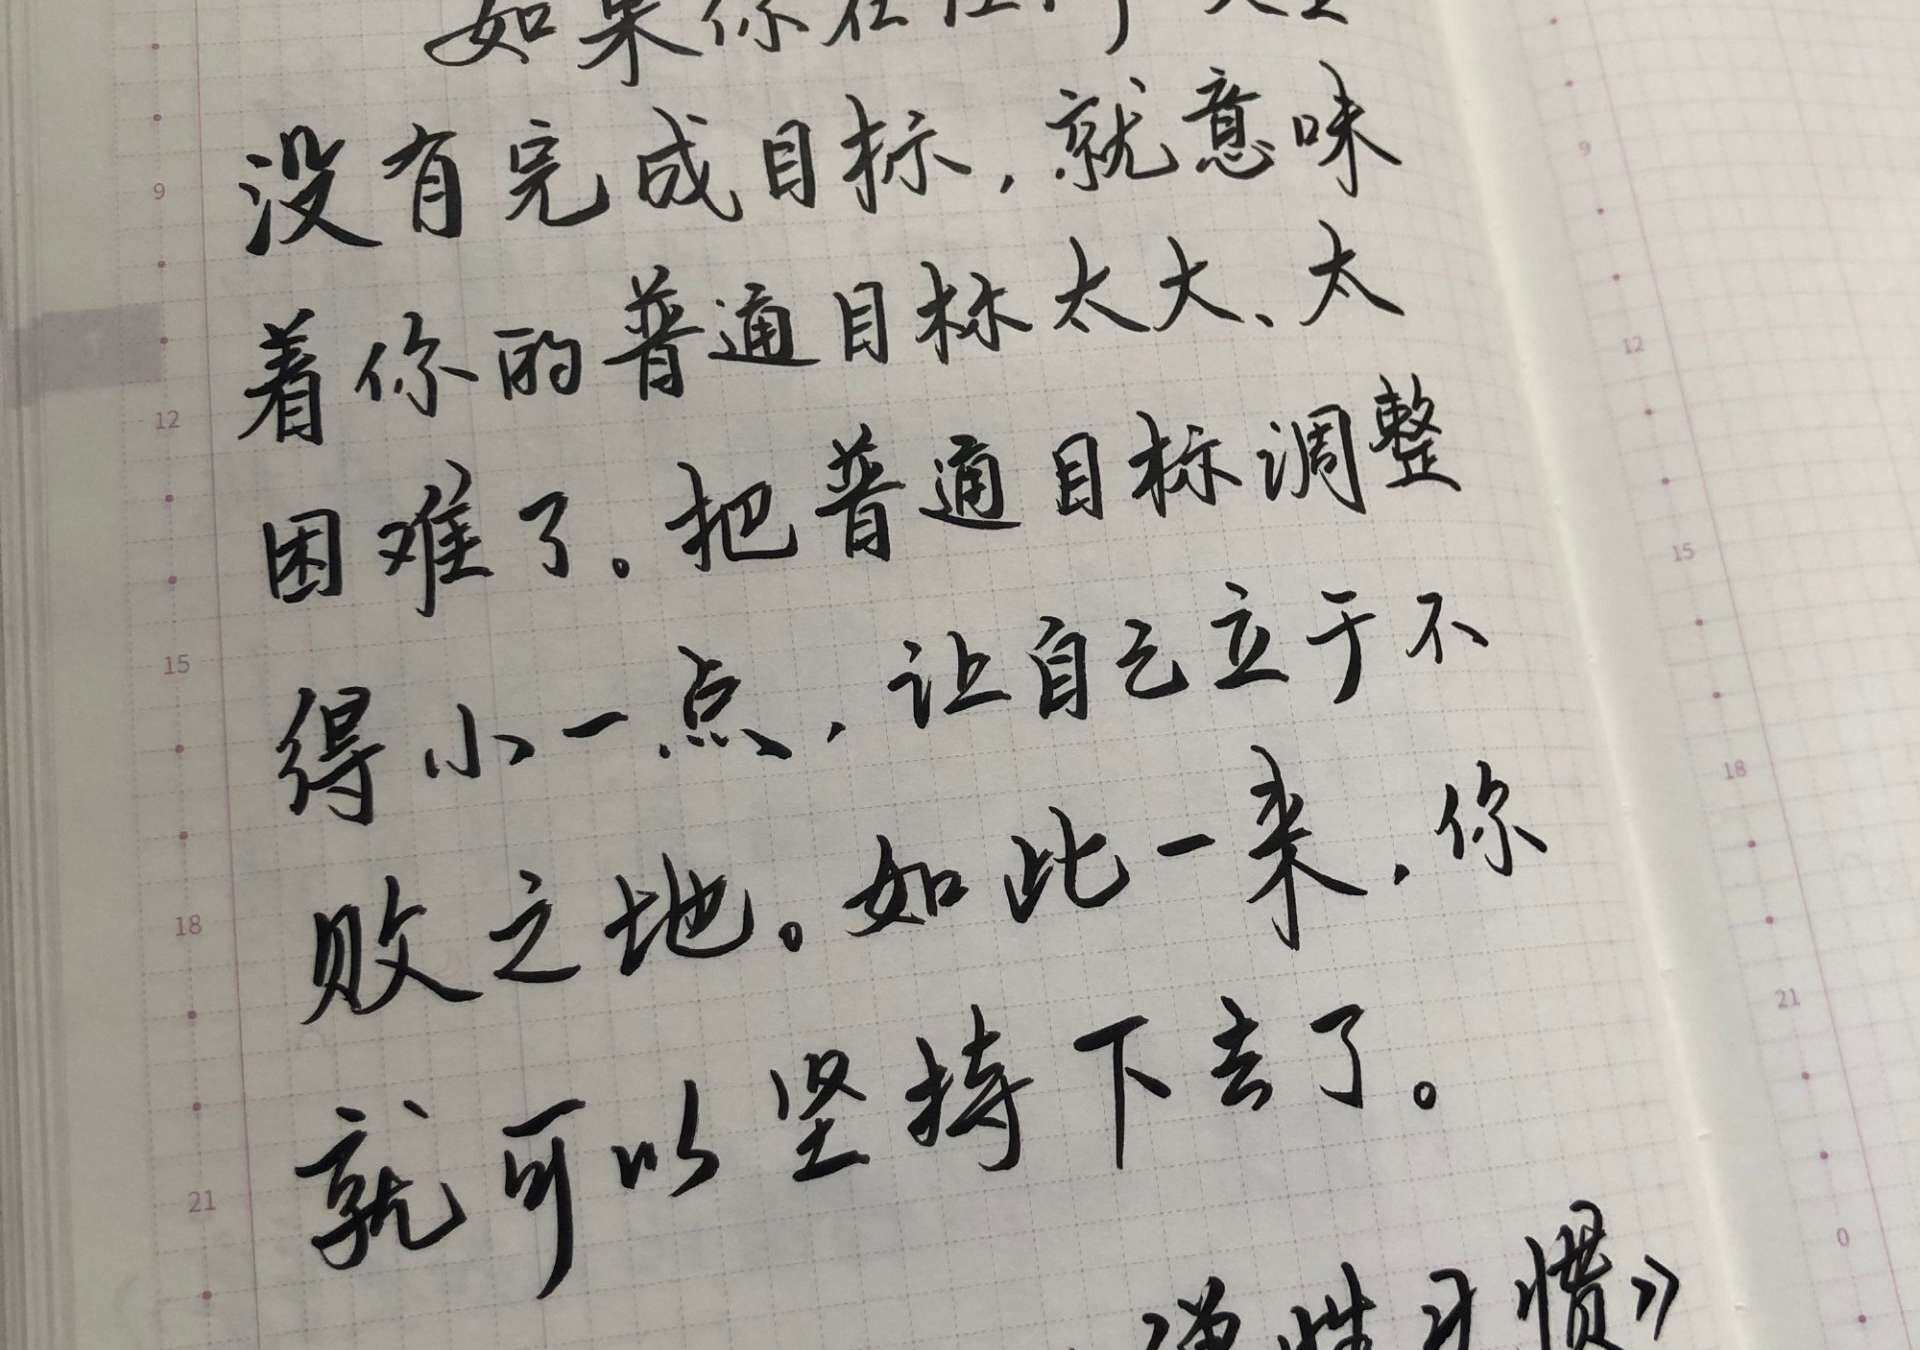 如果你在任
没有完成目标，就意味
着你的普通目标太大、太
困难了。把普通目标调整
得小一点，让自己立于不
败之地。如此一来，你
就可以坚持下去了。
弹性习惯》
9
12
15
18
21
9
12
15
18
21
0